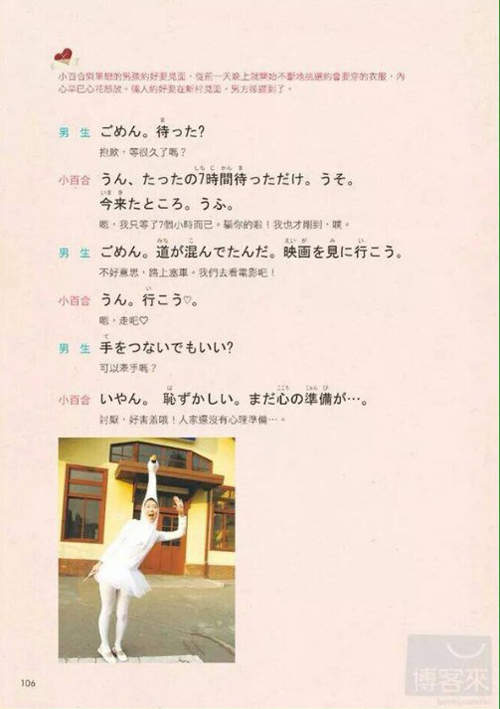 小百合與單戀的男孩約好要見面，從前一天晚上就開始不斷地挑選約會要穿的衣服，內
心早已心花怒放。倆人約好要在新村見面，男方卻遲到了。
男 生 ごめん。待った?
抱歉，等很久了嗎？
小百合 うん、たったの7時間待っただけ。うそ。
今来たところ。うふ。
嗯，我只等了7個小時而已。騙你的啦！我也才剛到，噗。
男 生 ごめん。道が混んでたんだ。映画を見に行こう。
不好意思，路上塞車。我們去看電影吧！
小百合 うん。行こう♡。
嗯，走吧♡
男 生 手をつないでもいい?
可以牽手嗎？
小百合 いやん。 恥ずかしい。まだ心の準備が…。
討厭，好害羞哦！人家還沒有心理準備…。
106
博客來